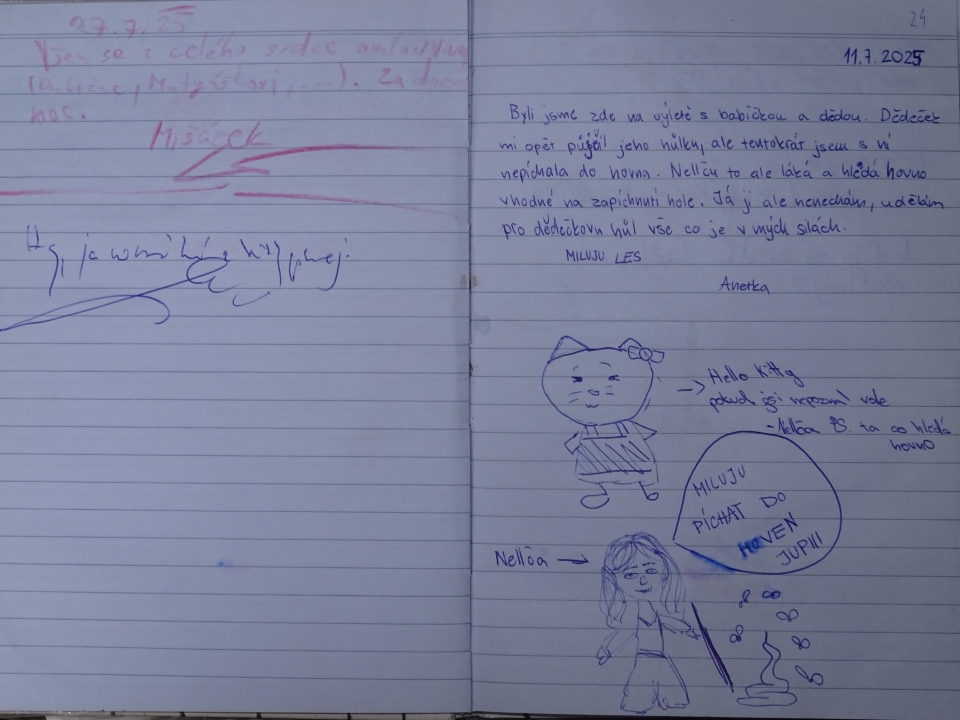 27.7.25
Všem se z celého srdce omlouvám
(Babičce, Matyáškovi, ...). Za
noc.
Mišáček
24
11.7.2025
Byli jsme zde na výletě s babičkou a dědou. Dědeček
mi opět půjčil jeho hůlku, ale tentokrát jsem s ní
nepíchala do hovna. Nellču to ale láká a hledá hovno
vhodné na zapíchnutí hole. Já ji ale nenechám, udělám
pro dědečkovu hůl vše co je v mých silách.
MILUJU LES
Anetka
→ Hello Kitty
pokud jsi nepoznal vole
- Nellča PS. ta co hledá
hovno
MILUJU
PÍCHAT DO
HOVEN
JUPIII
Nellča →